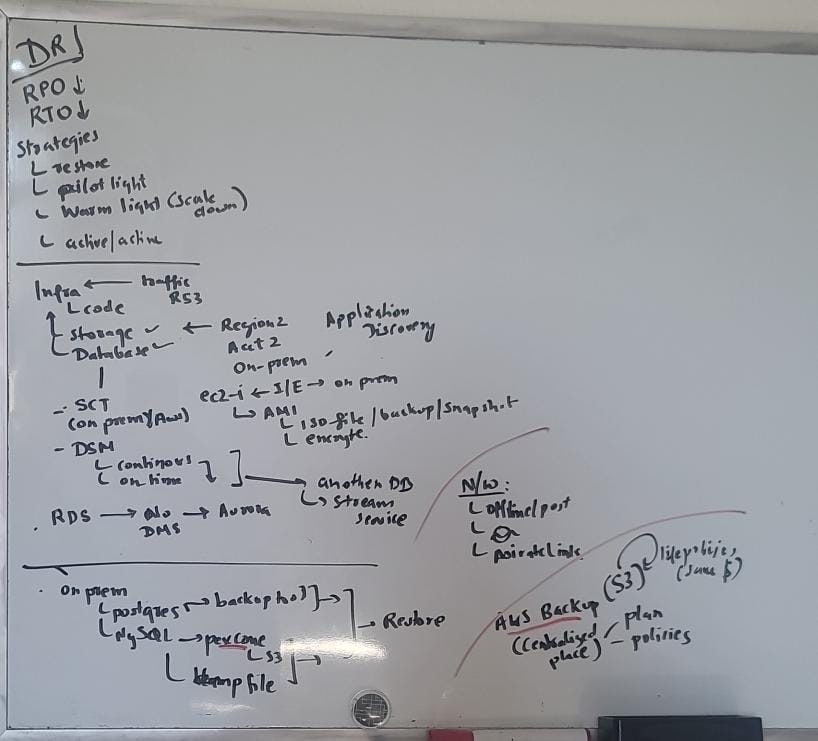 DR
RPO ↓
RTO ↓
Strategies
restore
pilot light
Warm light (scale down)
active/active
Infra ← traffic
R53
code
Storage ✓ ← Region2
Database ✓
Acct 2
On-prem
Application
Discovery
ec2-i ← I/E → on prem
AMI
ISO file/backup/snapshot
encrypte.
- SCT
(on prem/Aws)
- DSM
continous
on time
another DB
stream
service
RDS → No → Aurora
DMS
N/W:
offline/post
privatelink
on prem
postgres → backup
MySQL → percone
S3
file
Restore
AWS Backup (S3)
(Centralized
place)
plan
policies